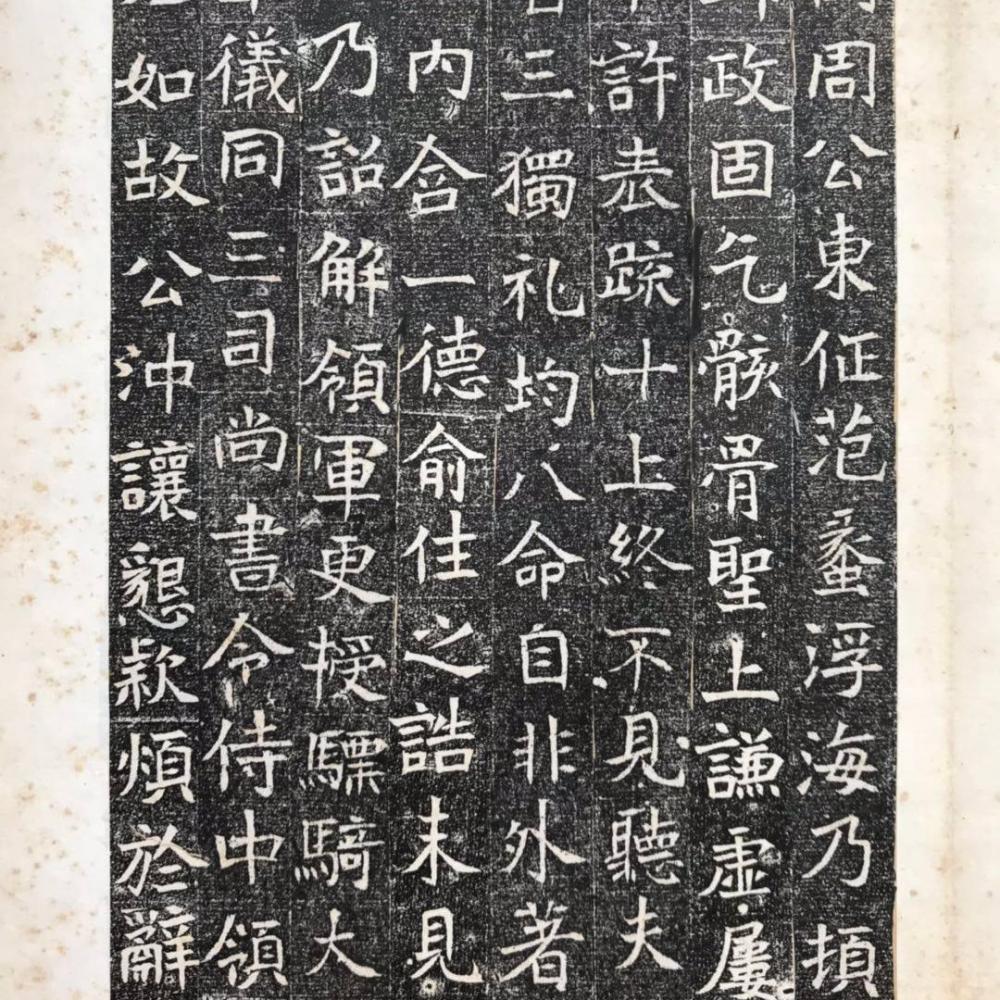 周公東征范蠡浮海乃頓
政固乞骸骨聖上謙虛屢
許表疏十上終不見聽夫
三獨礼均八命自非外著
內含一德俞往之誥未見
乃詔解領軍更授驃騎大
儀同三司尚書令侍中領
如故公沖讓懇款煩於辭